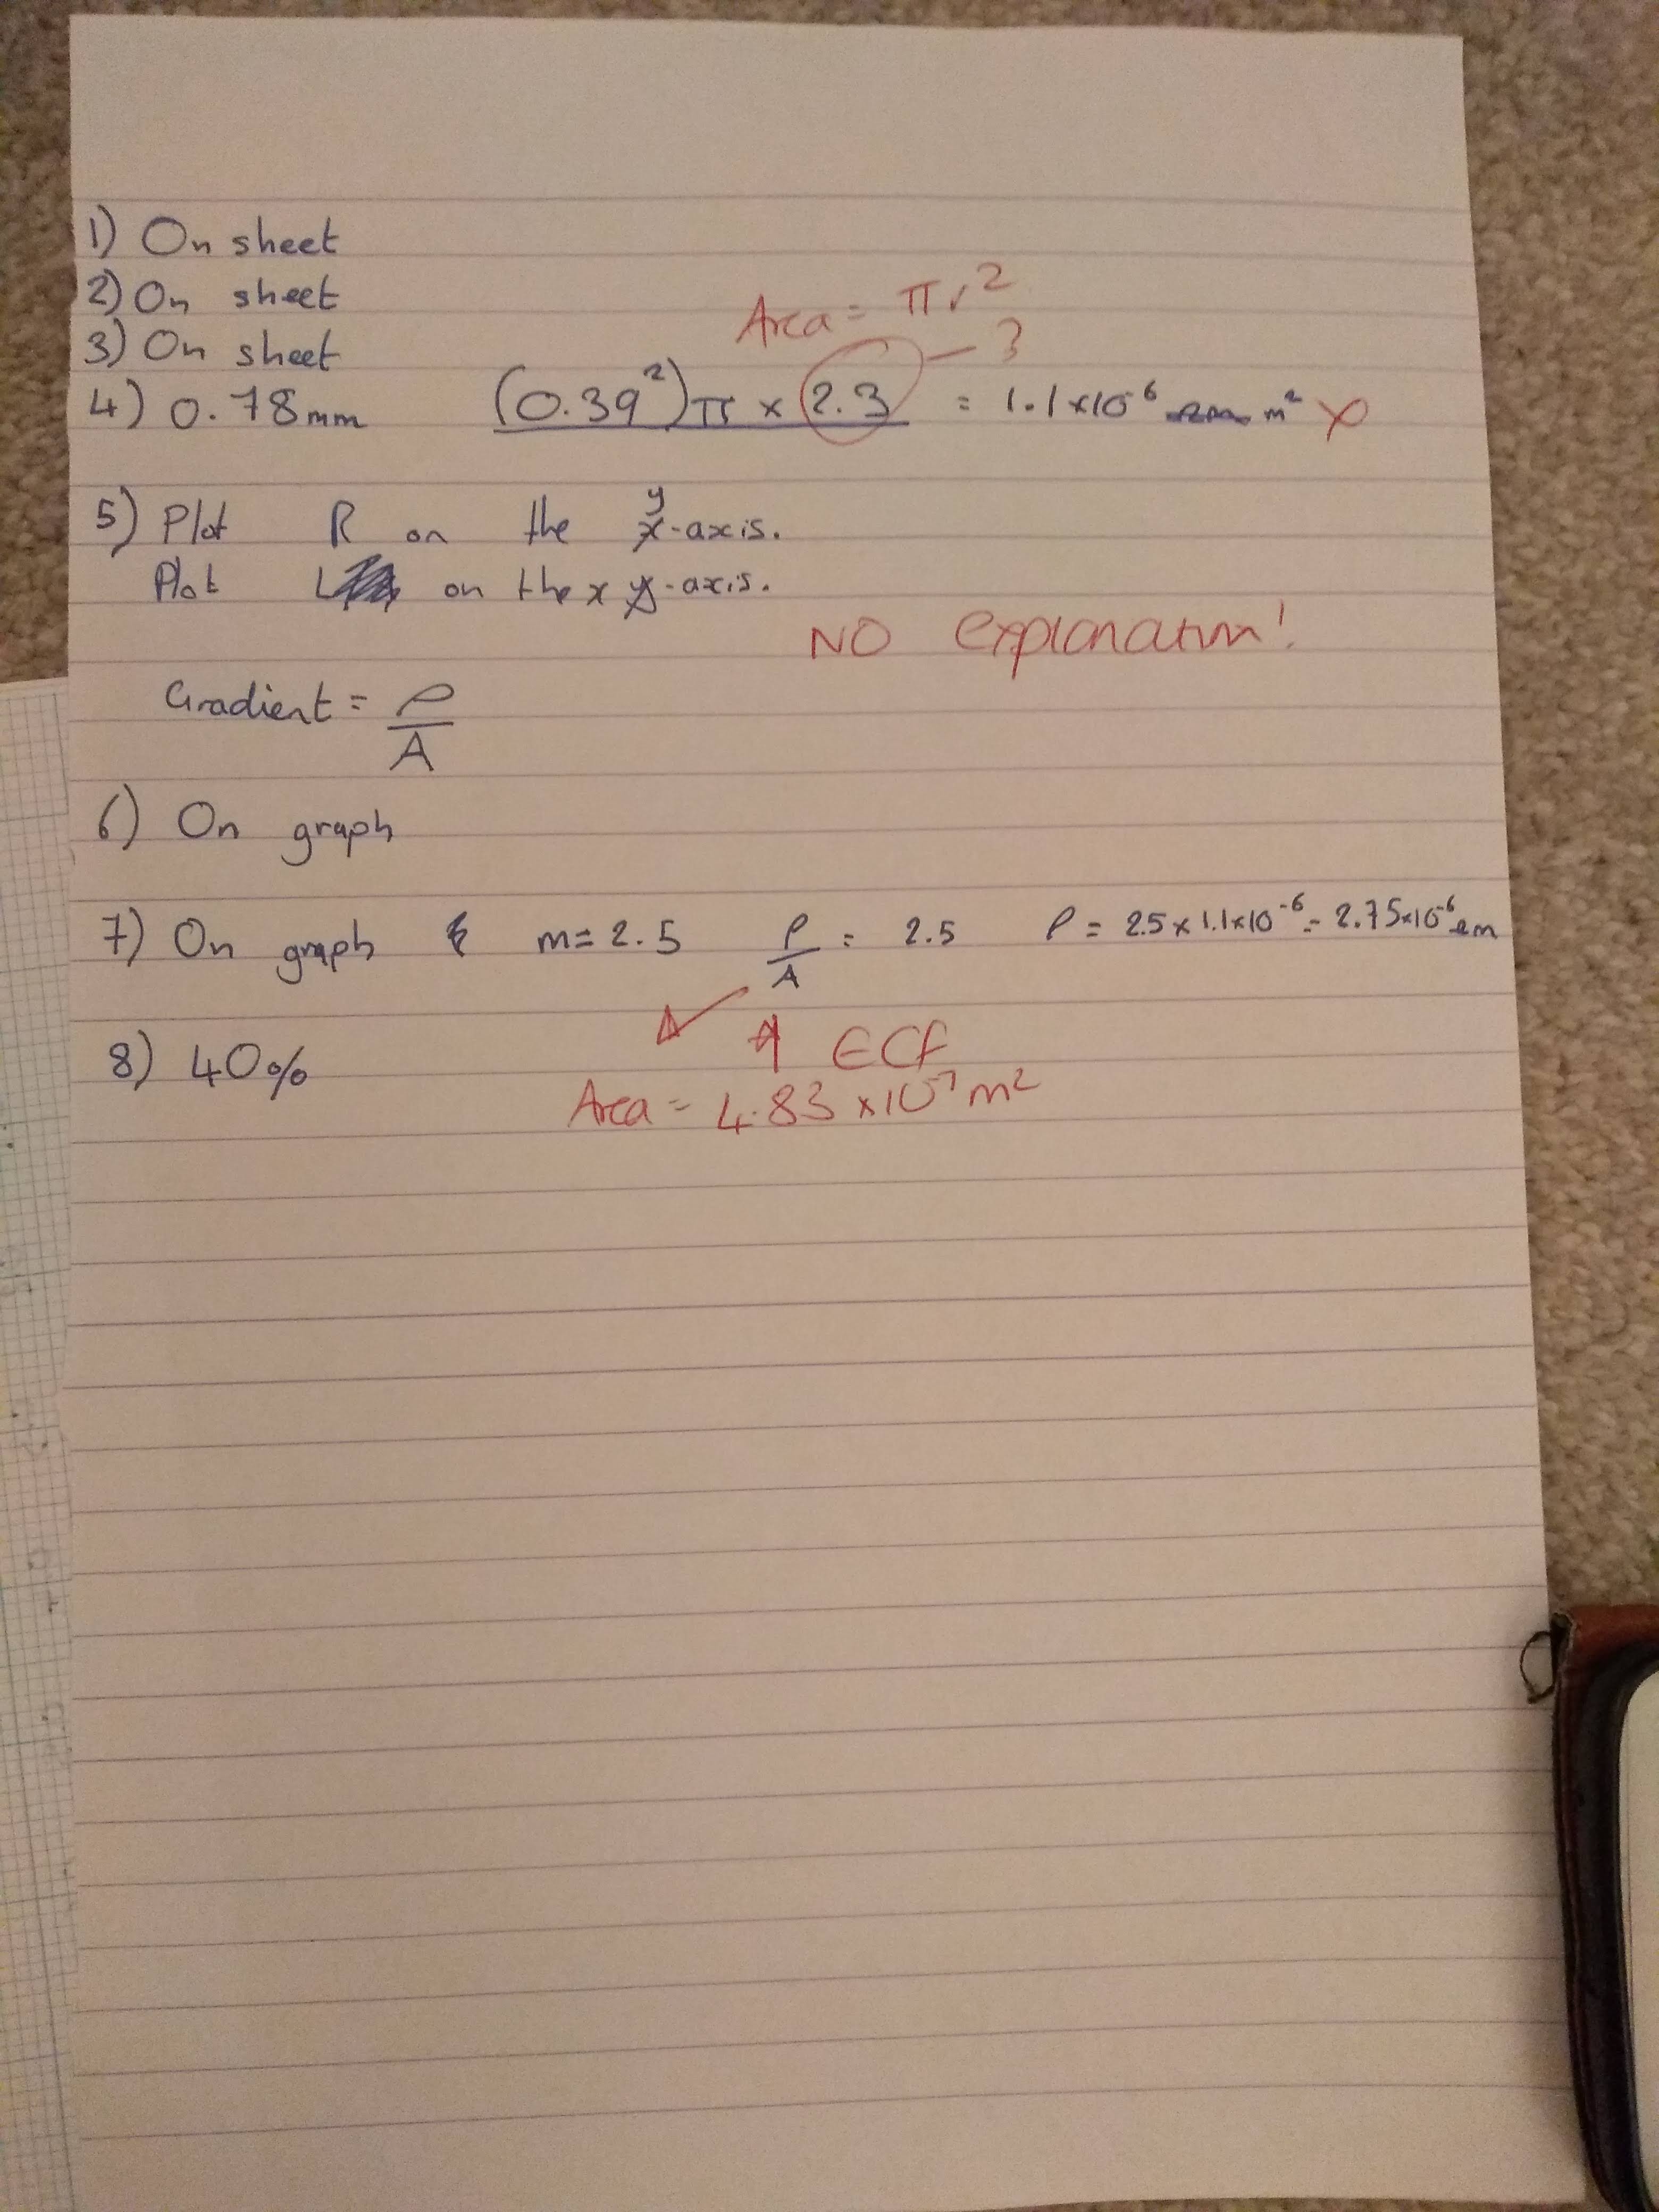 1) On sheet
2) On sheet
Area = πr²
3) On sheet
– ?
4) 0.78mm (0.39²)π × 2.3 = 1.1×10⁻⁶ m² ✗
5) Plot R on the y x-axis.
Plot L on the x y-axis.
NO explanation!
Gradient = ρ/A
6) On graph
7) On graph m = 2.5 ρ/A = 2.5 ρ = 2.5 × 1.1×10⁻⁶ = 2.75×10⁻⁶ Ωm
ECF
8) 40%
Area = 4.83 ×10⁻⁷ m²